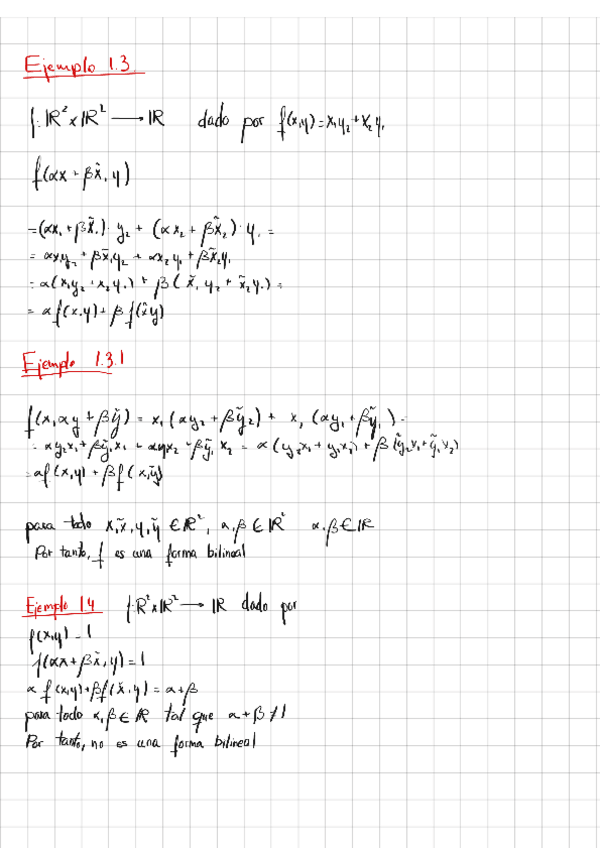 Ejemplo 1.3.
f: ℝ² x ℝ² → ℝ dado por f(x,y) = x₁y₂ + x₂y₁
f(αx + βx̃, y)
= (αx₁ + βx̃₁) · y₂ + (αx₂ + βx̃₂) · y₁ =
= αx₁y₂ + βx̃₁y₂ + αx₂y₁ + βx̃₂y₁
= α(x₁y₂ + x₂y₁) + β(x̃₁y₂ + x̃₂y₁) =
= αf(x,y) + βf(x̃,y)
Ejemplo 1.3.1
f(x, αy + βỹ) = x₁(αy₂ + βỹ₂) + x₂(αy₁ + βỹ₁) =
= αy₂x₁ + βỹ₂x₁ + αy₁x₂ + βỹ₁x₂ = α(y₂x₁ + y₁x₂) + β(ỹ₂x₁ + ỹ₁x₂)
= αf(x,y) + βf(x,ỹ)
para todo x, x̃, y, ỹ ∈ ℝ², α, β ∈ ℝ² α, β ∈ ℝ
Por tanto, f es una forma bilineal
Ejemplo 1.4 f: ℝ² x ℝ² → ℝ dado por
f(x,y) = 1
f(αx + βx̃, y) = 1
αf(x,y) + βf(x̃,y) = α + β
para todo α, β ∈ ℝ tal que α + β ≠ 1
Por tanto, no es una forma bilineal